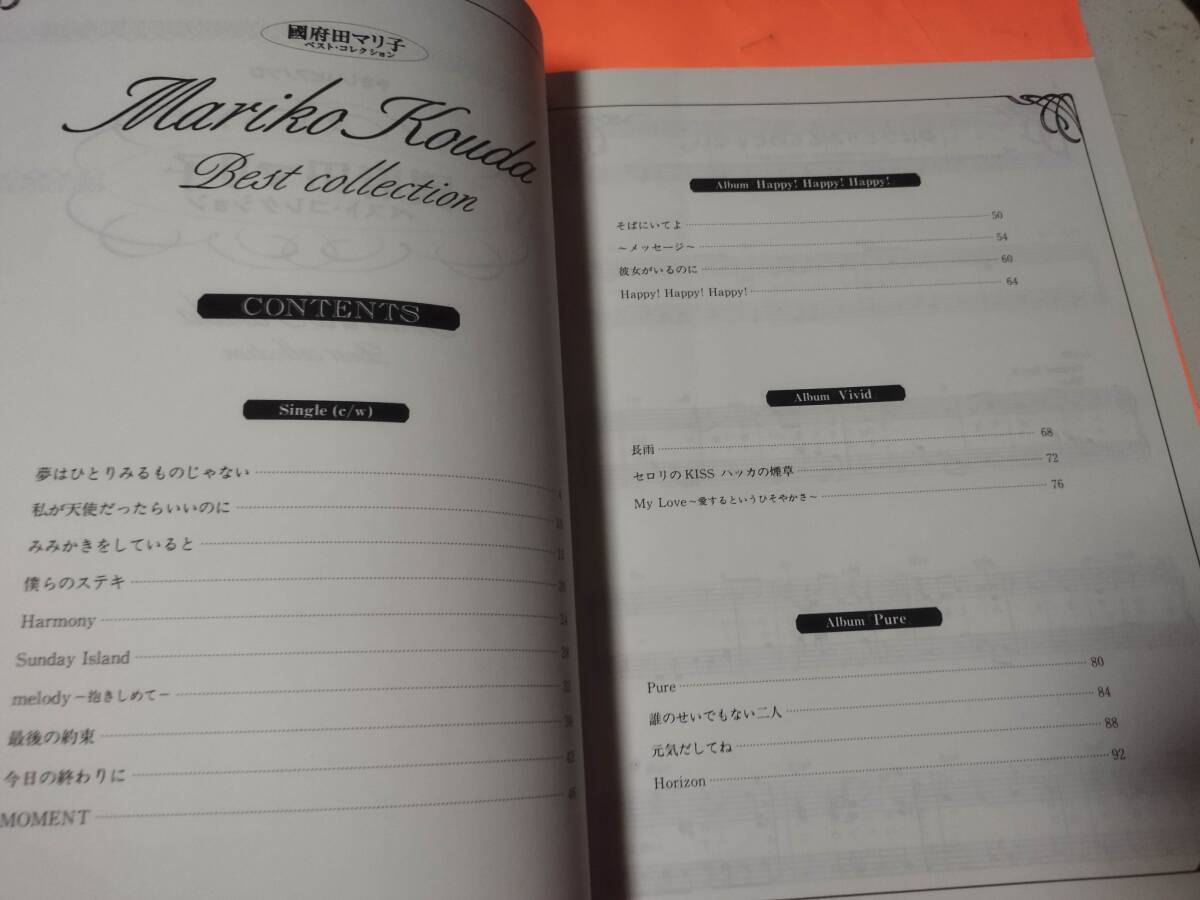 國府田マリ子
ベスト・コレクション
Mariko Kouda
Best collection
CONTENTS
Single (c/w)
夢はひとりみるものじゃない
私が天使だったらいいのに
みみかきをしていると
僕らのステキ
Harmony
Sunday Island 28
melody－抱きしめて－ 32
最後の約束
今日の終わりに 42
MOMENT 46
Album Happy! Happy! Happy!
そばにいてよ 50
～メッセージ～ 54
彼女がいるのに 60
Happy! Happy! Happy! 64
Album Vivid
長雨 68
セロリのKISS ハッカの煙草 72
My Love～愛するというひそやかさ～ 76
Album Pure
Pure 80
誰のせいでもない二人 84
元気だしてね 88
Horizon 92